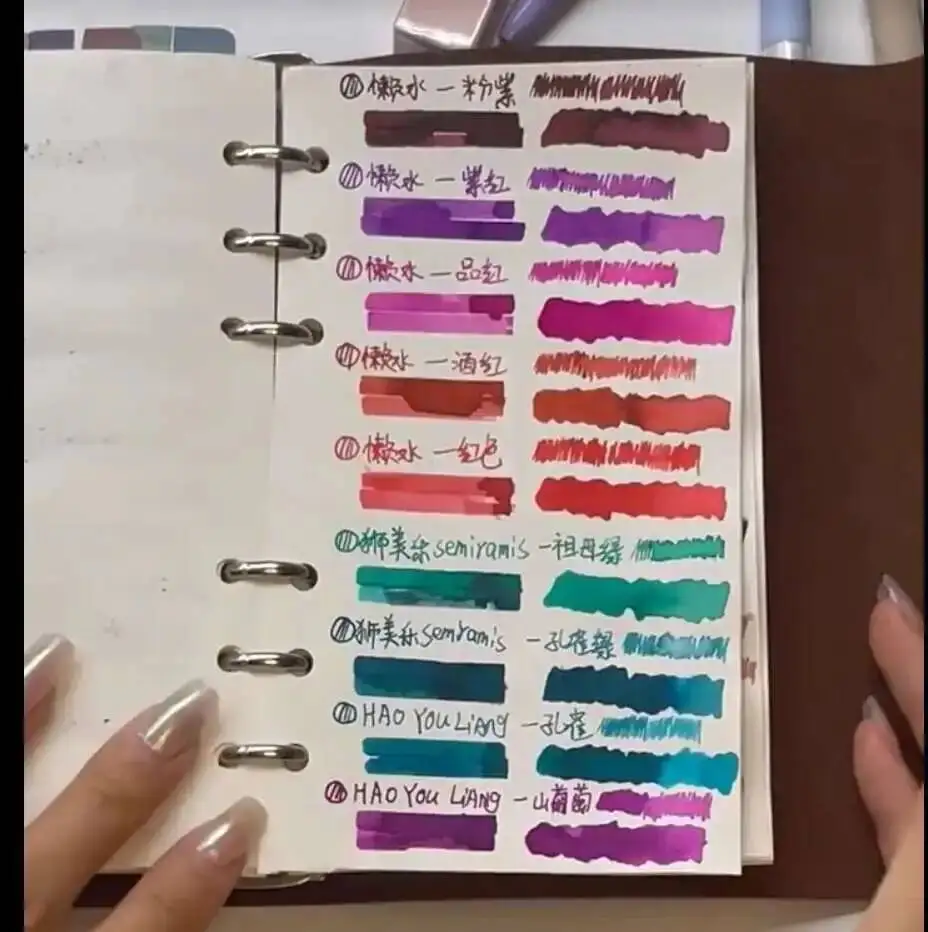 懒水 — 粉紫
懒水 — 紫红
懒水 — 品红
懒水 — 酒红
懒水 — 红色
狮美乐semiramis — 祖母绿
狮美乐semiramis — 孔雀绿
HAO YOU LIANG — 孔雀
HAO YOU LiANG — 山葡萄